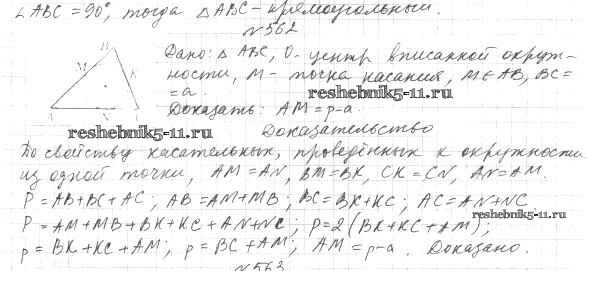 ∠ABC = 90°, тогда △ABC - прямоугольный.
№562
Дано: △ ABC, O - центр вписанной окруж-
ности, M - точка касания, M ∈ AB, BC =
= a.
reshebnik5-11.ru
Доказать: AM = p - a.
reshebnik5-11.ru
Доказательство
По свойству касательных, проведённых к окружности
из одной точки, AM = AN, BM = BK, CK = CN, AN = AM.
P = AB + BC + AC; AB = AM + MB; BC = BK + KC; AC = AN + NC
reshebnik5-11.ru
P = AM + MB + BK + KC + AN + NC; P = 2(BK + KC + AM);
p = BK + KC + AM; p = BC + AM; AM = p - a. Доказано.
№563